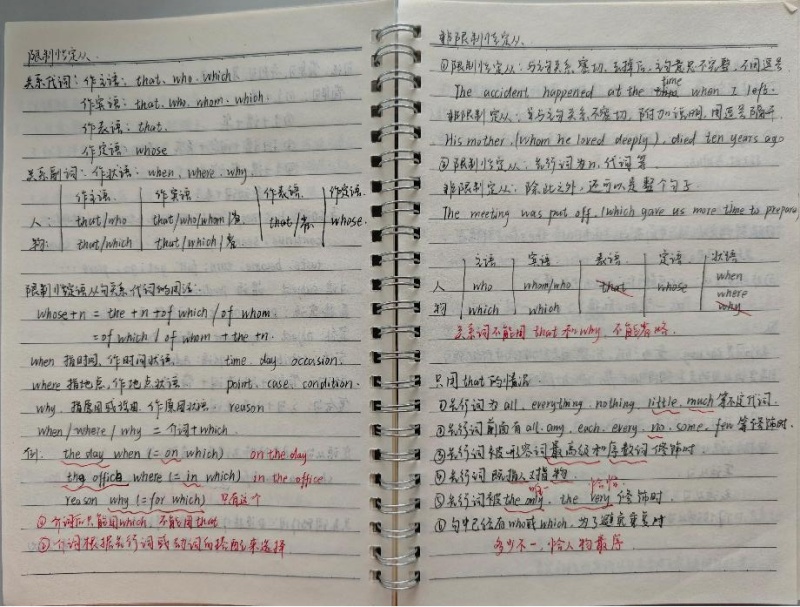 限制性定从.
关系代词: 作主语: that、who、which
作宾语: that、who、whom、which.
作表语: that.
作定语: whose
关系副词: 作状语: when、where、why
作主语. 作宾语 作表语. 作定语
人: that/who that/who/whom/省 that/省. whose.
物: that/which that/which/省
限制性定语从句关系代词的用法:
whose+n = the +n +of which / of whom
=of which / of whom +the +n.
when 指时间, 作时间状语 time. day occasion.
where 指地点, 作地点状语 point. case. condition.
why. 指原因或说因. 作原因状语. reason
when / where / why = 介词+which
例. the day when (= on which) on the day
the office where (= in which) in the office
reason why (= for which) 只有这个
① 介词后只能用which, 不能用that
② 介词根据先行词或动词的搭配来选择
非限制性定从.
①限制性定从: 与主句关系密切, 去掉后, 主句意思不完整, 不用逗号
time
The accident happened at the when I left.
非限制定从: 与主句关系不密切, 附加说明, 用逗号隔开
His mother, (whom he loved deeply), died ten years ago
②限制性定从: 先行词为n, 代词等
非限制定从: 除此之外, 还可以是整个句子
The meeting was put off, (which gave us more time to prepare)
主语 宾语 表语 定语 状语
人 who whom/who that whose when
物 which which where
why
关系词不能用that和why, 不能省略.
只用that的情况
①先行词为all, everything, nothing, little, much等不定代词.
②先行词前面有all, any, each, every, no, some, few等修饰时.
③先行词被形容词最高级和序数词修饰时
④先行词既指人又指物.
唯一 恰恰.
⑤先行词被the only, the very修饰时
⑥句中已经有who或which, 为了避免重复时
多少不一, 恰人物最序.